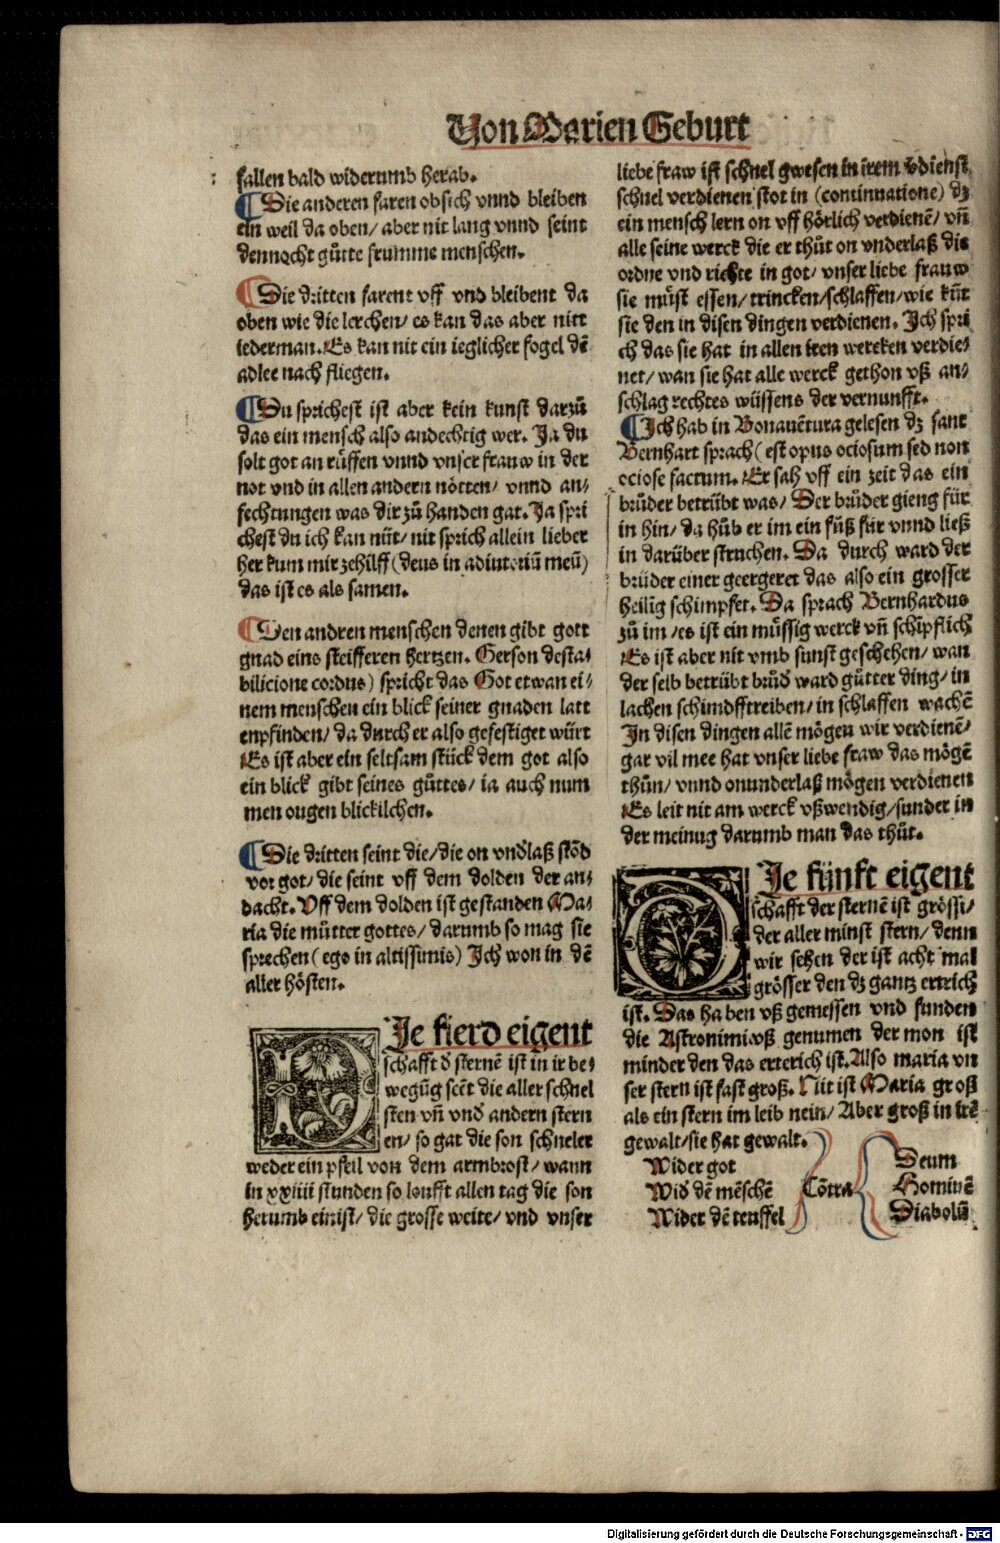 Von Marien Geburt
fallen bald widerumb herab.
¶Die anderen faren obsich vnnd bleiben
ein weil da oben/ aber nit lang vnnd seint
dennocht gůtte frumme menschen.
¶Die dritten farent vff vnd bleibent da
oben wie die lerchen/ es kan das aber nitt
iederman. Es kan nit ein ieglicher fogel dē
adler nach fliegen.
¶Du sprichest ist aber kein kunst darzů
das ein mensch also andechtig wer. Ja du
solt got an růffen vnnd vnser frauw in der
not vnd in allen andern nötten/ vnnd an/
fechtungen was dir zů handen gat. Ja spri
chest du ich kan nüt/ nit sprich allein lieber
her kum mir zehilff (deus in adiutoriū meū)
das ist es als samen.
¶Den andren menschen denen gibt gott
gnad eins steifferen hertzen. Gerson desta/
bilicione cordus) spricht das Got etwan ei/
nem menschen ein blick seiner gnaden latt
enpfinden/ da durch er also gefestiget würt
Es ist aber ein seltsam stück dem got also
ein blick gibt seines gůttes/ ia auch num
men ougen blickilchen.
¶Die dritten seint die/ die on vnd̄laß stōd
vor got/ die seint vff dem dolden der an/
dacht. Vff dem dolden ist gestanden Ma/
ria die můtter gottes/ darumb so mag sie
sprechen (ego in altissimis) Ich won in dē
aller hösten.
DIe fierd eigent
schafft d̄ sternē ist in ir be/
wegūg seēt die aller schnel
sten vn̄ vnd andern stern
en/ so gat die son schneler
weder ein pfeil von dem armbrost/ wann
in xxiiii stunden so loufft allen tag die son
herumb einist/ die grosse weite/ vnd vnser
liebe fraw ist schnel gwesen in irem v̄dienst
schnel verdienen stot in (continuatione) dz
ein mensch lern on vff hörlich verdienē/ vn̄
alle seine werck die er thůt on vnderlaß die
ordne vnd richte in got/ vnser liebe frauw
sie můst essen/ trincken/ schlaffen/ wie kūt
sie den in disen dingen verdienen. Ich spri
ch das sie hat in allen iren wercken verdie/
net/ wan sie hat alle werck gethon vß an/
schlag rechtes wüssens der vernunfft.
¶Ich hab in Bonauētura gelesen dz sant
Bernhart sprach (est opus ociosum sed non
ociose factum. Er sah vff ein zeit das ein
brůder betrübt was/ Der brůder gieng für
in hin/ da hůb er im ein fůß für vnnd ließ
in darüber struchen. Da durch ward der
brůder einer geergeret das also ein grosser
heilig schimpfet. Da sprach Bernhardus
zů im/ es ist ein müssig werck vn̄ schīpflich
Es ist aber nit vmb sunst geschehen/ wan
der selb betrübt brůd̄ ward gůtter ding/ in
lachen schimdfftreiben/ in schlaffen wachē
In disen dingen allē mögen wir verdienē/
gar vil mee hat vnser liebe fraw das mögē
thůn/ vnnd onunderlaß mögen verdienen
Es leit nit am werck vßwendig/ sunder in
der meinug darumb man das thůt.
DIe fünft eigent
schafft der sternē ist grössi/
der aller minst stern/ denn
wir sehen der ist acht mal
grösser den dz gantz ertrich
ist. Das ha ben vß gemessen vnd funden
die Astronimi vß genumen der mon ist
minder den das erterich ist. Also maria vn
ser stern ist fast groß. Nit ist Maria groß
als ein stern im leib nein/ Aber groß in irē
gewalt/ sie hat gewalt.
Wider got
Wid̄ dē mēschē
Wider dē teuffel
Cōtra
Deum
Hominē
Diabolū
Digitalisierung gefördert durch die Deutsche Forschungsgemeinschaft - DFG